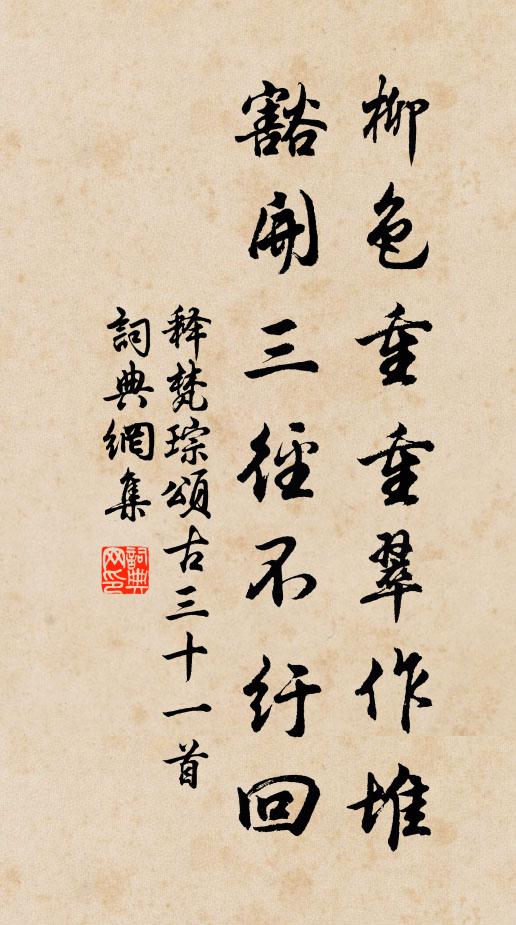 柳色重重翠作堆
豁開三徑不紆回
释梵琮頌古三十一首
詞典網集
詞典网印